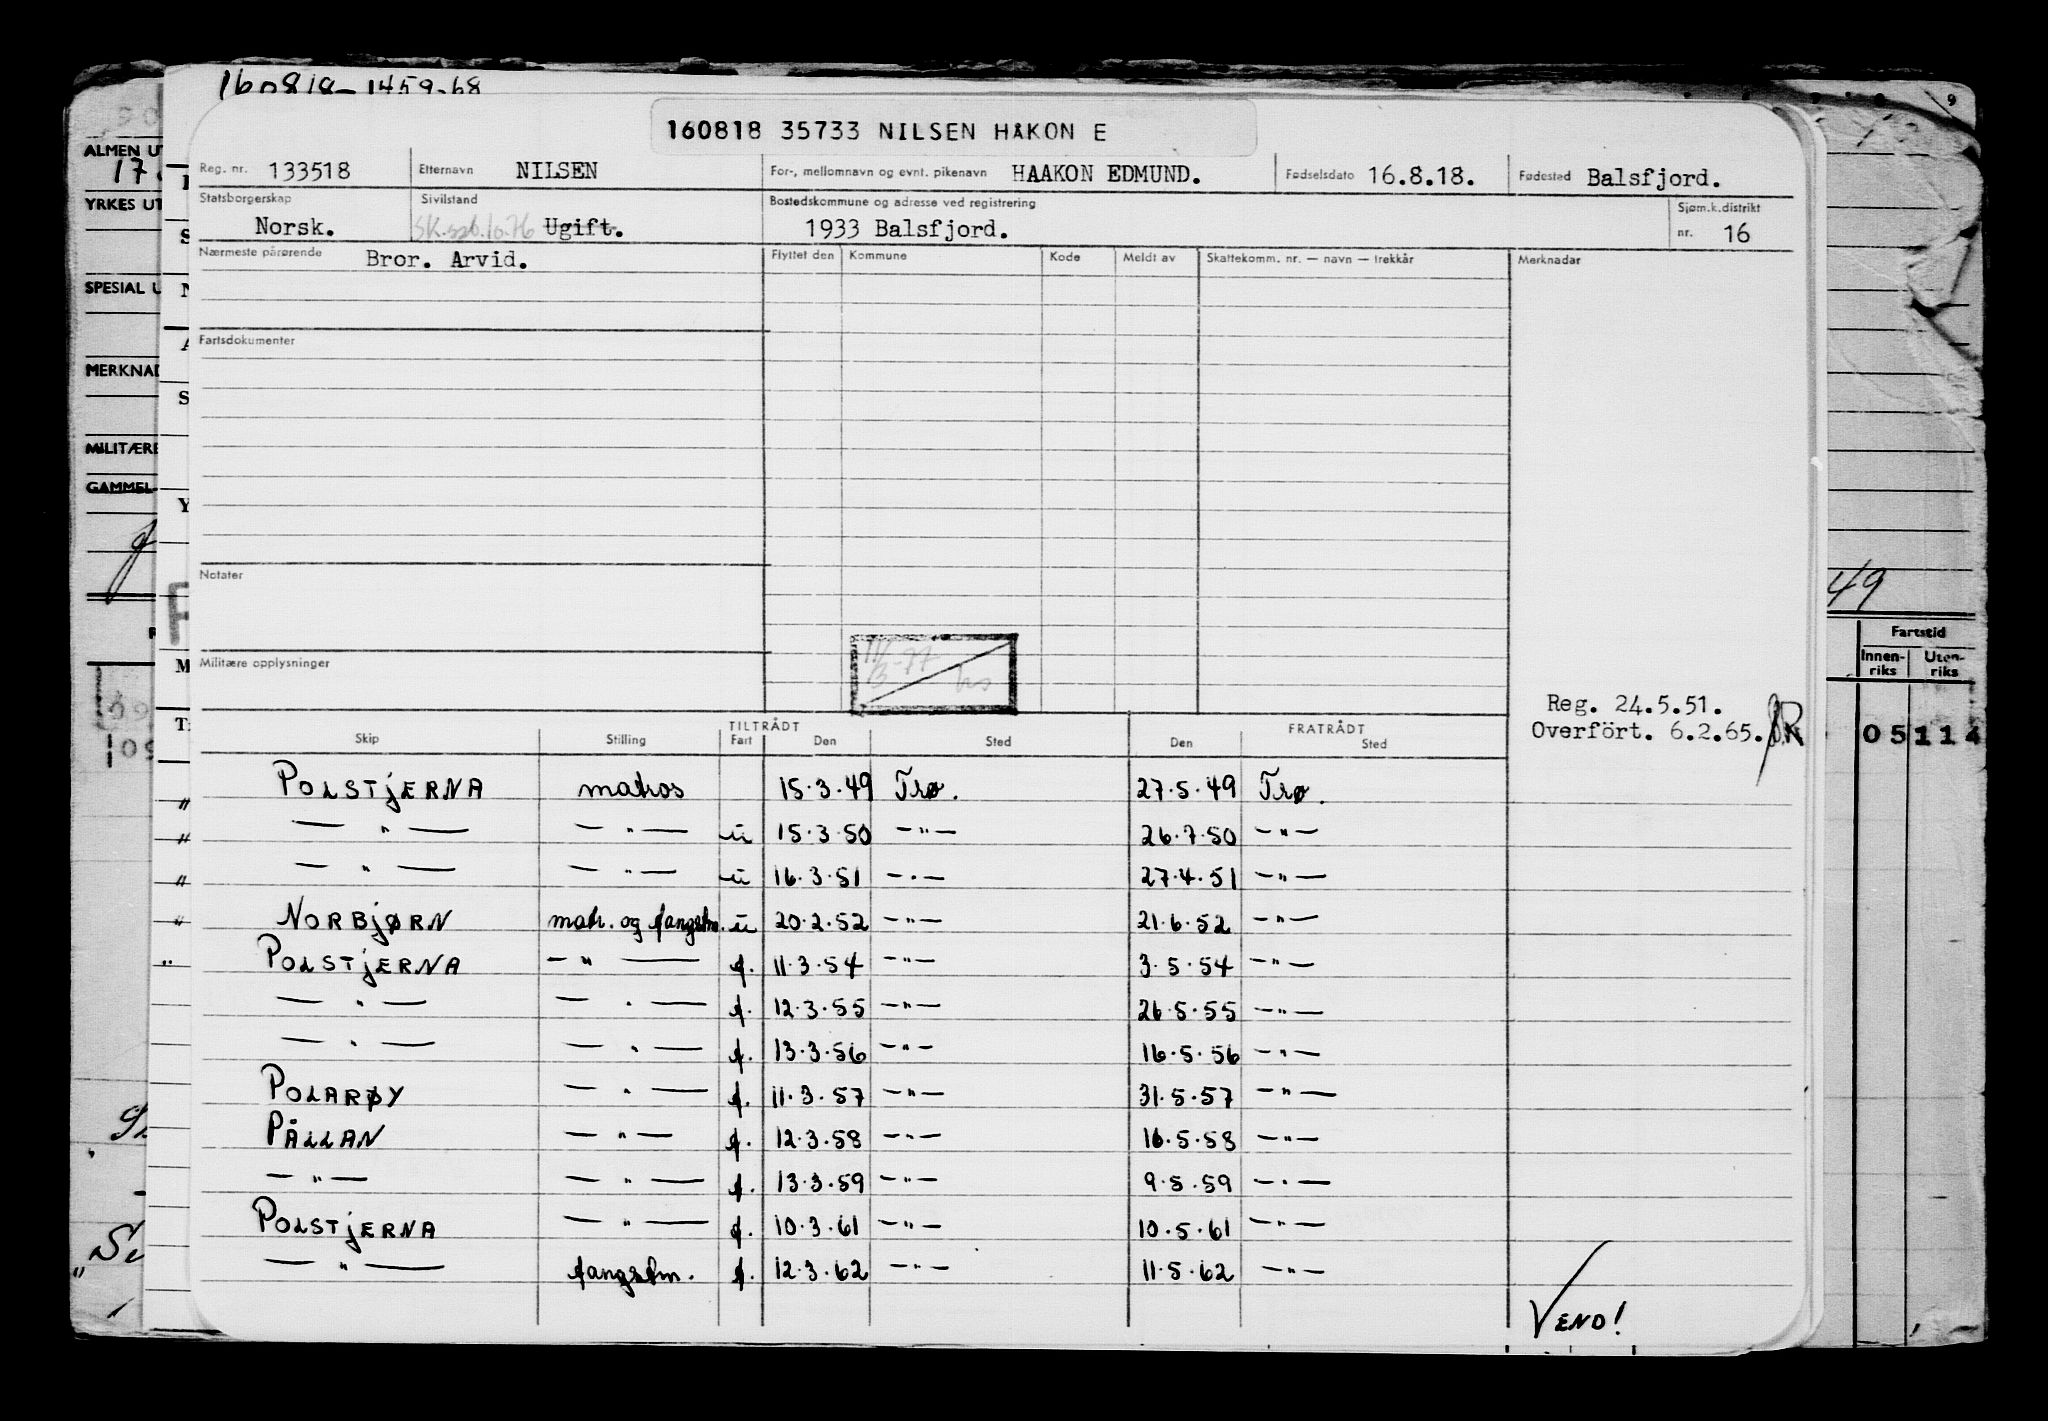 160818-1459-68
160818 35733 NILSEN HÅKON E
Reg. nr. 133518 Etternavn NILSEN For-, mellomnavn og evnt. pikenavn HAAKON EDMUND. Fødselsdato 16.8.18. Fødested Balsfjord.
Statsborgerskap Sivilstand Bostedskommune og adresse ved registrering Sjøm.k.distrikt
Norsk. Ugift. 1933 Balsfjord. nr. 16
Nærmeste pårørende Bror. Arvid. Flyttet den Kommune Kode Meldt av Skattekomm. nr. — navn — trekkår Merknader
Fartsdokumenter
Notater
Militære opplysninger
Reg. 24.5.51.
Overfört. 6.2.65.
TILTRÅDT FRATRÅDT
Skip Stilling Fart Den Sted Den Sted
" POLSTJERNA matros 15.3.49 Trø. 27.5.49 Trø.
" — " — — " — u 15.3.50 — " — 26.7.50 — " —
" — " — — " — u 16.3.51 — " — 27.4.51 — " —
" NORBJØRN matr. og fangstm. u 20.2.52 — " — 21.6.52 — " —
" POLSTJERNA — " — f. 11.3.54 — " — 3.5.54 — " —
— " — — " — f. 12.3.55 — " — 26.5.55 — " —
— " — — " — f. 13.3.56 — " — 16.5.56 — " —
POLARØY — " — f. 11.3.57 — " — 31.5.57 — " —
PÅLLAN — " — f. 12.3.58 — " — 16.5.58 — " —
— " — — " — f. 13.3.59 — " — 9.5.59 — " —
POLSTJERNA — " — f. 10.3.61 — " — 10.5.61 — " —
— " — fangstm. f. 12.3.62 — " — 11.5.62 — " —
VEND!
ALMEN UT
YRKES UT
SPESIAL U
MERKNAD
MILITÆRE
GAMMEL
9
49
Fartstid
Innen-riks Uten-riks
05 114